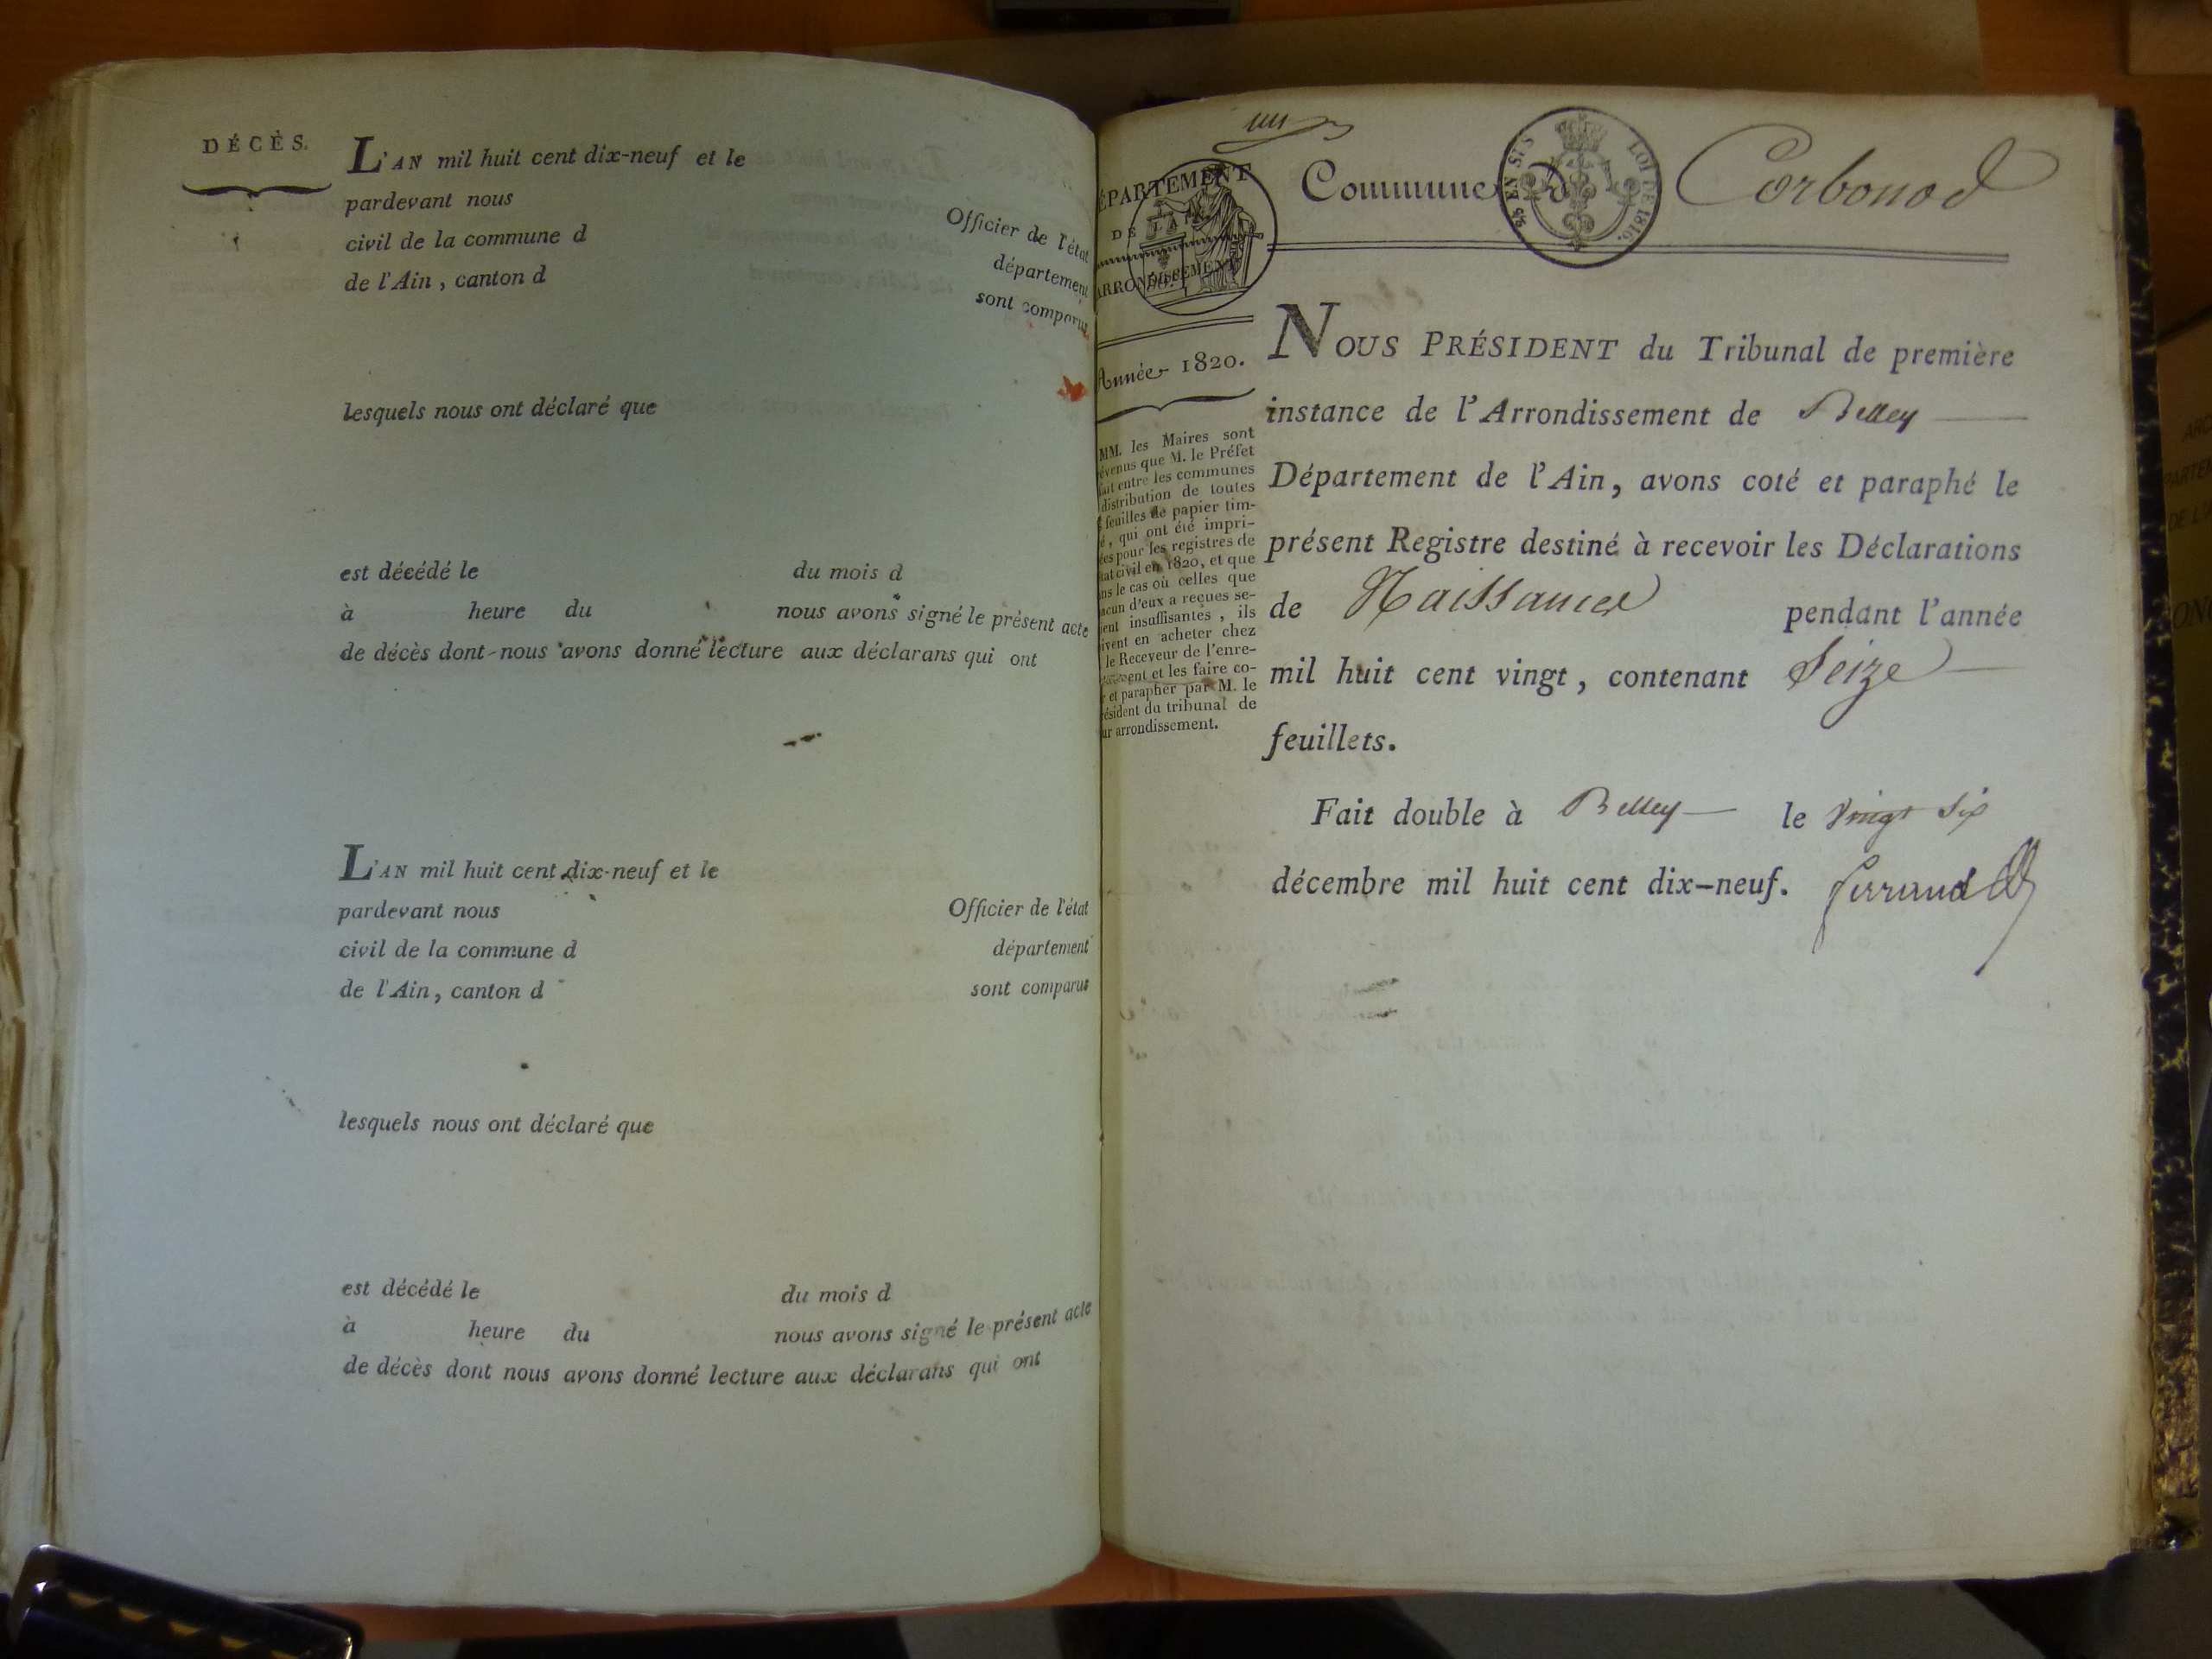 DÉCÈS.
L'AN mil huit cent dix-neuf et le
pardevant nous Officier de l'état
civil de la commune d département
de l'Ain, canton d sont comparus
lesquels nous ont déclaré que
est décédé le du mois d
à heure du nous avons signé le présent acte
de décès dont nous avons donné lecture aux déclarans qui ont
L'AN mil huit cent dix-neuf et le
pardevant nous Officier de l'état
civil de la commune d département
de l'Ain, canton d sont comparus
lesquels nous ont déclaré que
est décédé le du mois d
à heure du nous avons signé le présent acte
de décès dont nous avons donné lecture aux déclarans qui ont
un
ÉPARTEMENT
DE L'AIN.
ARRONDISSEMENT
Année 1820.
MM. les Maires sont
évenus que M. le Préfet
ait entre les communes
distribution de toutes
s feuilles de papier tim-
é, qui ont été impri-
ées pour les registres de
tat civil en 1820, et que
ns le cas où celles que
acun d'eux a reçues se-
ent insuffisantes, ils
ivent en acheter chez
le Receveur de l'enre-
ement et les faire co-
r et parapher par M. le
ésident du tribunal de
ur arrondissement.
Commune de Corbonod
25 EN SUS
LOI DE 1816.
NOUS PRÉSIDENT du Tribunal de première
instance de l'Arrondissement de Belley
Département de l'Ain, avons coté et paraphé le
présent Registre destiné à recevoir les Déclarations
de Naissance pendant l'année
mil huit cent vingt, contenant Seize
feuillets.
Fait double à Belley le vingt six
décembre mil huit cent dix-neuf.